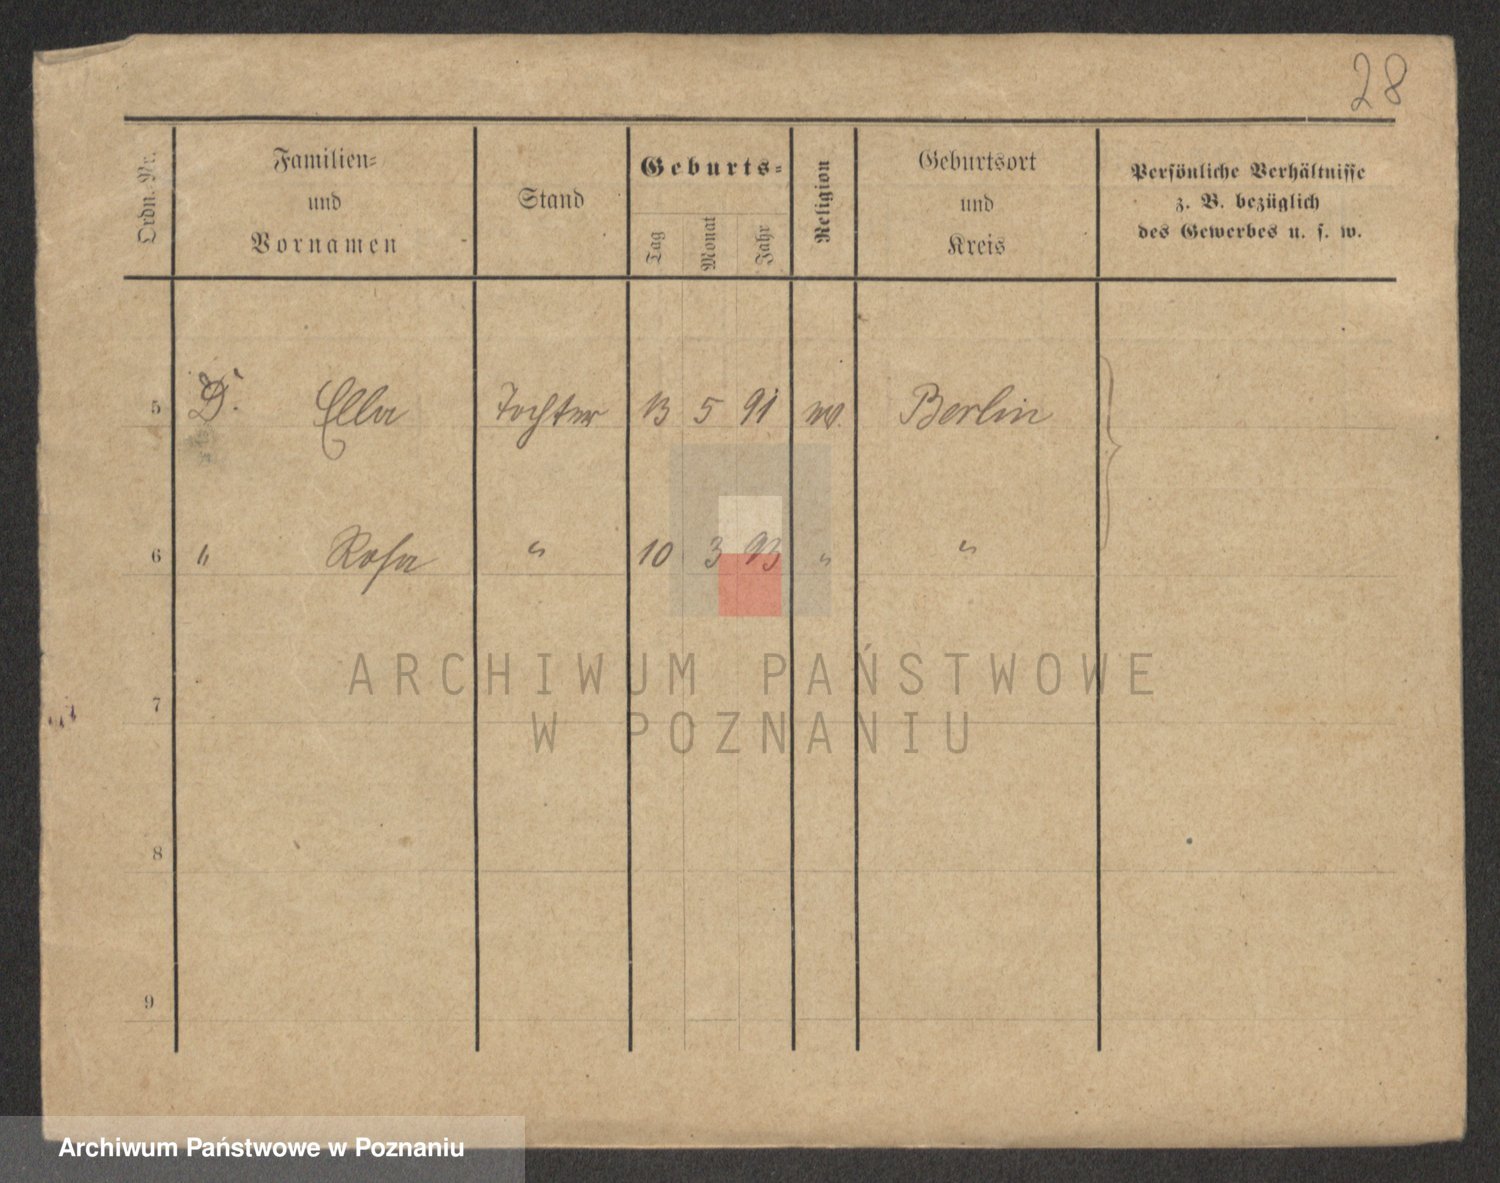 28
Ordn.-Nr.
Familien-
und
Vornamen
Stand
Geburts-
Tag
Monat
Jahr
Religion
Geburtsort
und
Kreis
Persönliche Verhältnisse
z. B. bezüglich
des Gewerbes u. s. w.
5 D. Ella Tochter 13 5 91 Berlin
6 " Rosa " 10 3 93 " "
7
8
9
ARCHIWUM PAŃSTWOWE
W POZNANIU
Archiwum Państwowe w Poznaniu